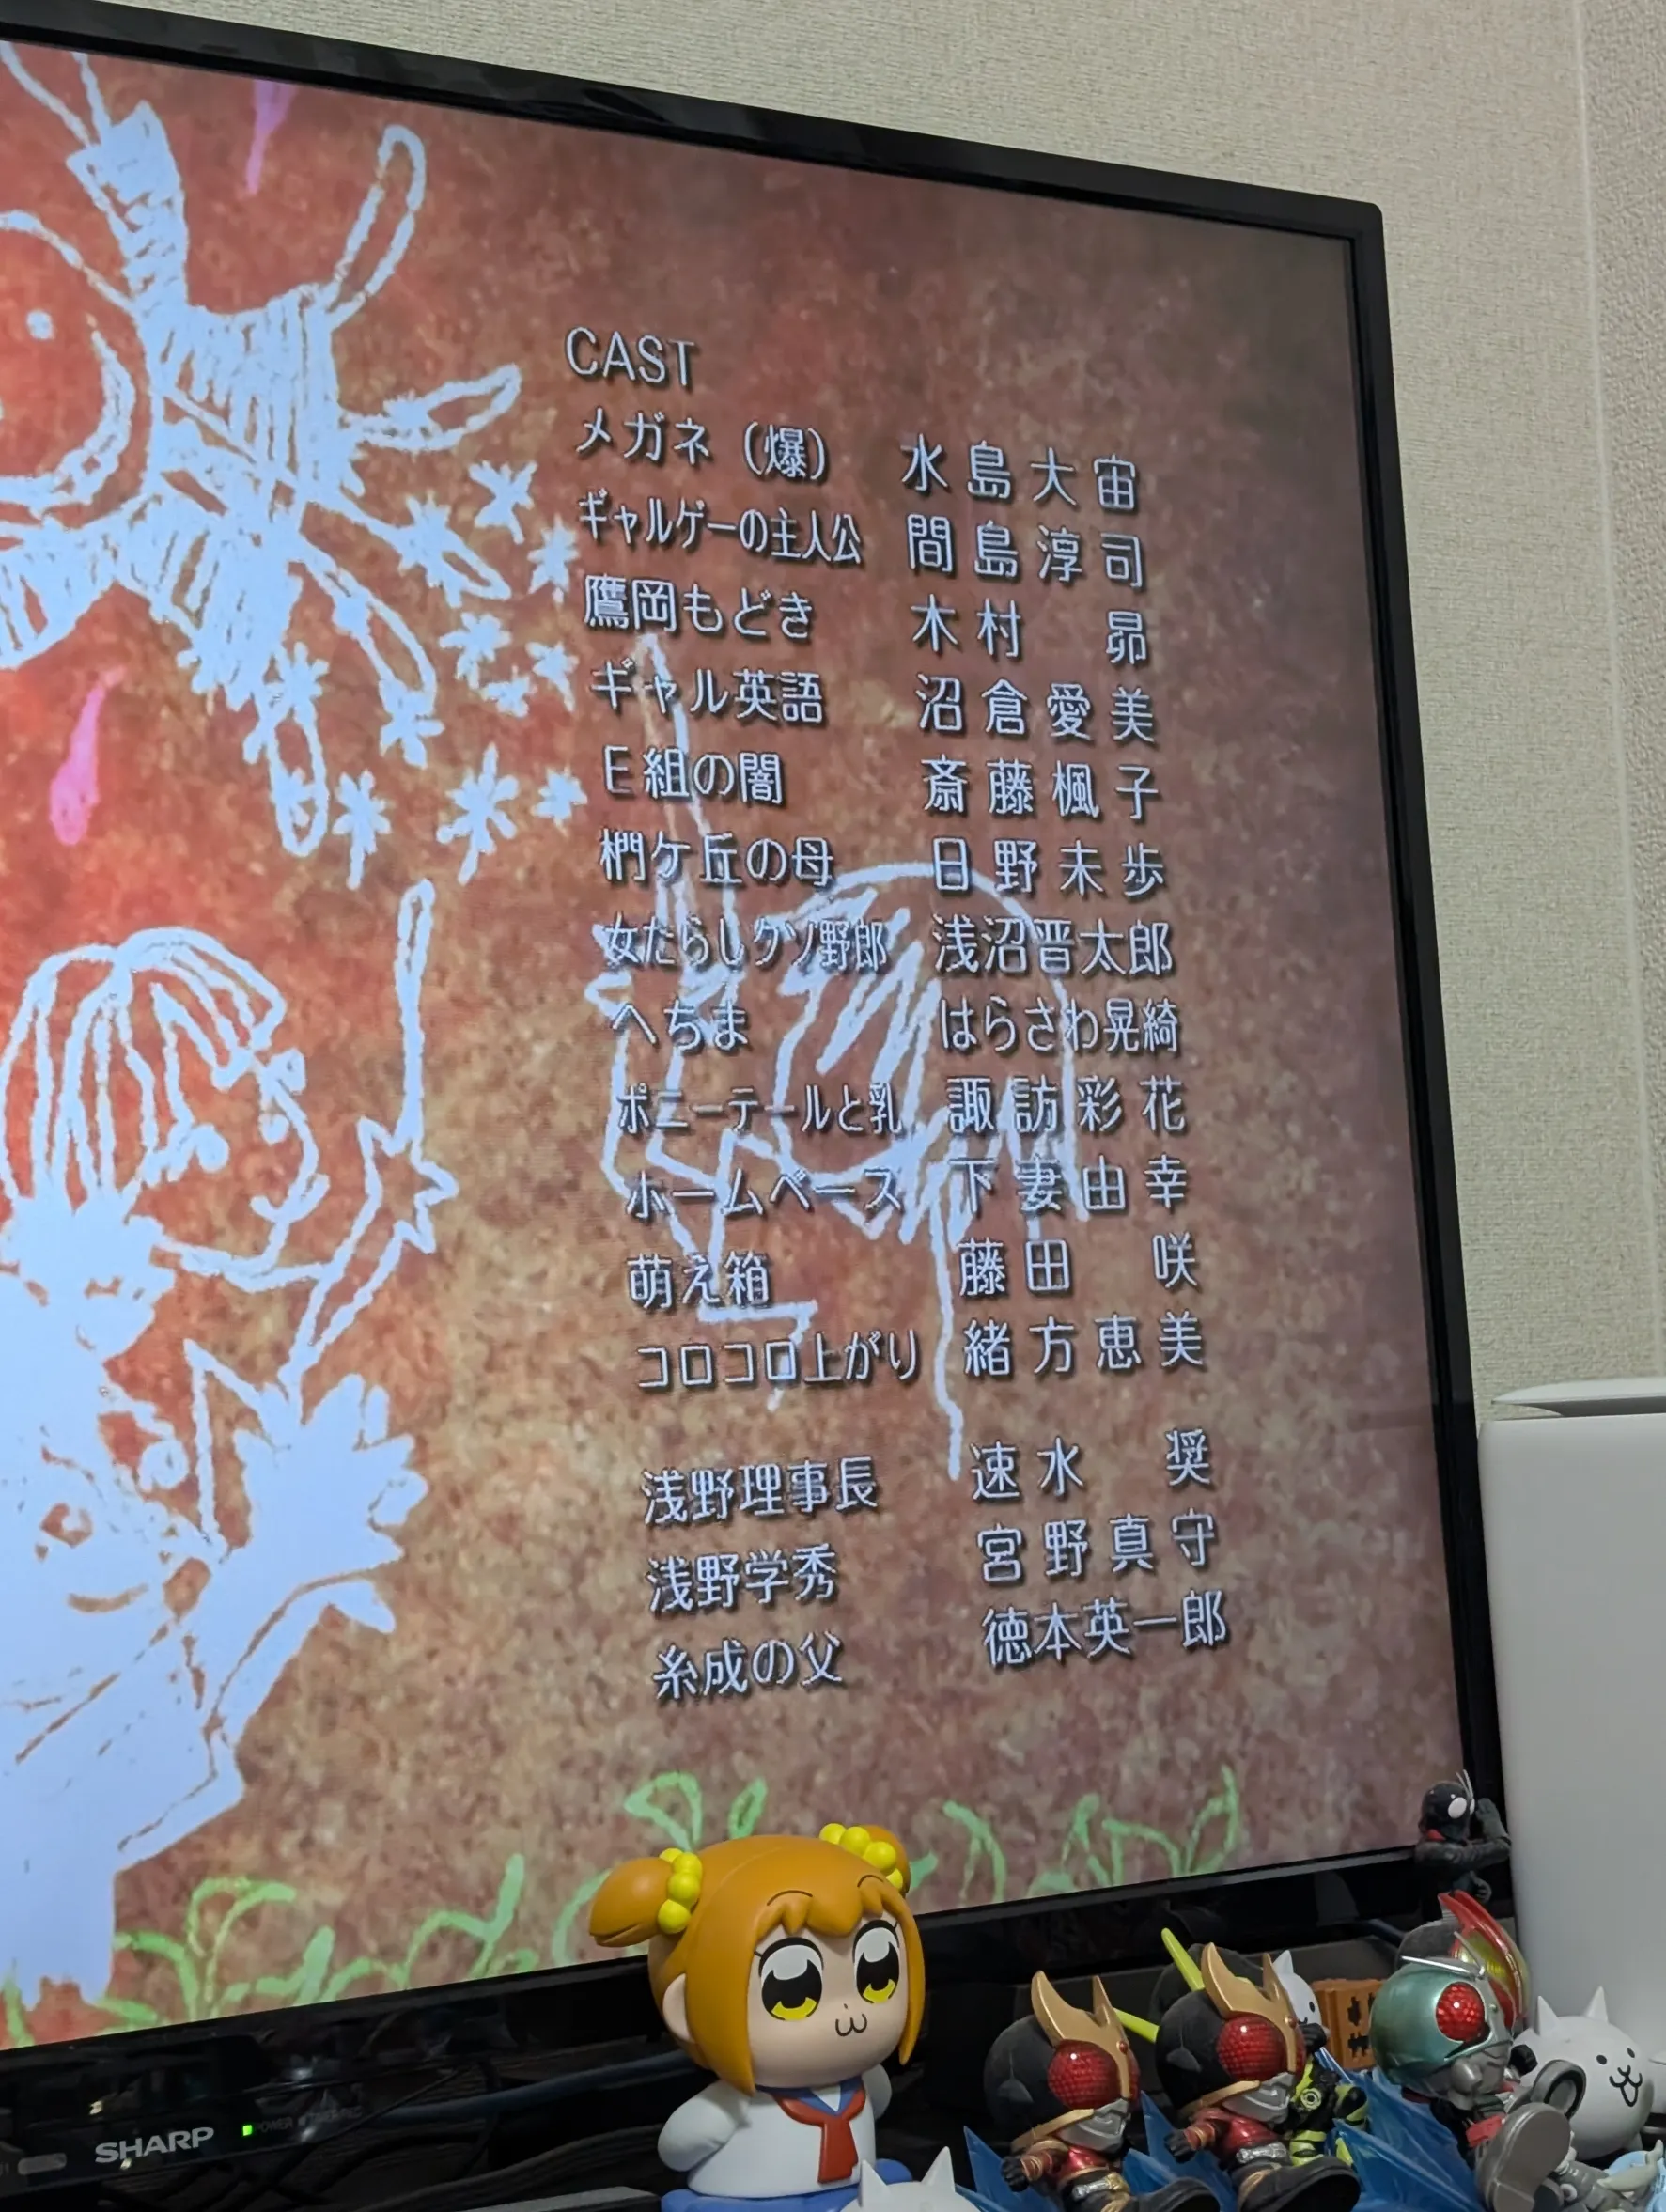 CAST
メガネ（爆） 水島大宙
ギャルゲーの主人公 間島淳司
鷹岡もどき 木村 昴
ギャル英語 沼倉愛美
E組の闇 斎藤楓子
椚ケ丘の母 日野未歩
女たらしクソ野郎 浅沼晋太郎
へちま はらさわ晃綺
ポニーテールと乳 諏訪彩花
ホームベース 下妻由幸
萌え箱 藤田 咲
コロコロ上がり 緒方恵美
浅野理事長 速水 奨
浅野学秀 宮野真守
糸成の父 徳本英一郎
SHARP
POWER